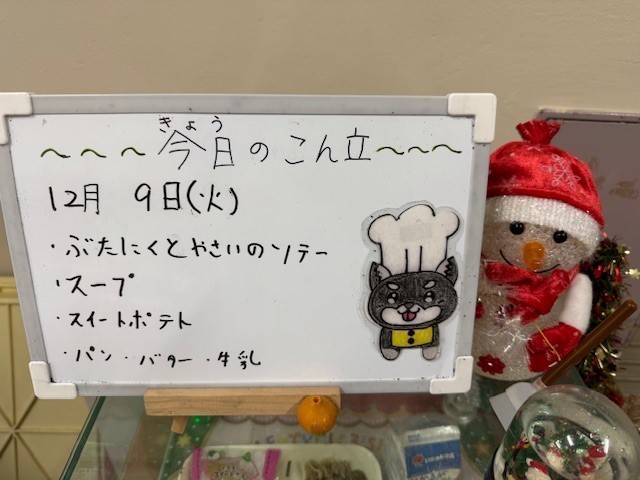 きょう
～～～今日のこん立～～～
12月 9日(火)
・ぶたにくとやさいのソテー
・スープ
・スイートポテト
・パン・バター・牛乳